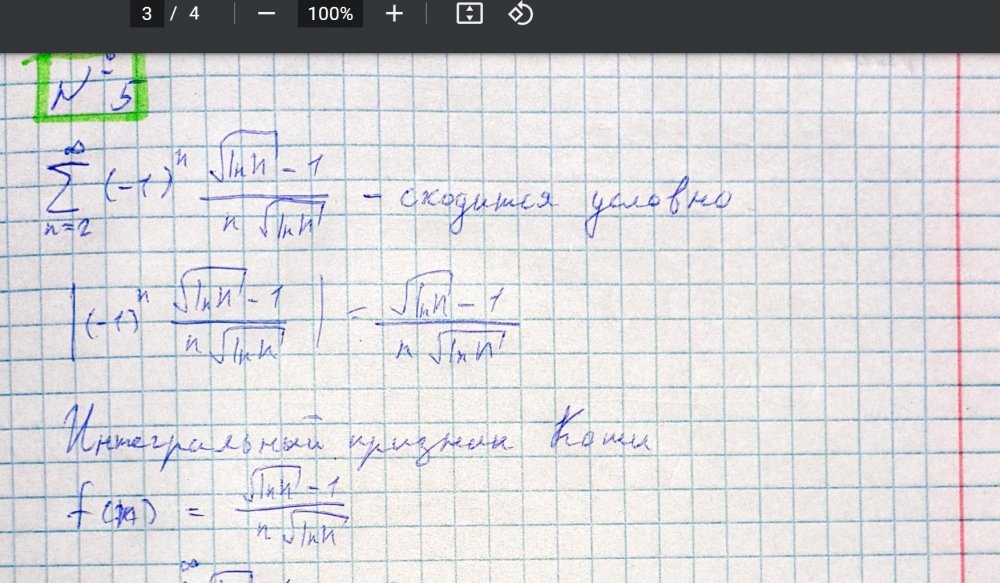 3 / 4 — 100% +
№ 5
∑_{n=2}^{∞} (-1)^n (√(ln n) - 1) / (n √(ln n)) - сходится условно
|(-1)^n (√(ln n) - 1) / (n √(ln n))| = (√(ln n) - 1) / (n √(ln n))
Интегральный признак Коши
f(n) = (√(ln n) - 1) / (n √(ln n))
∞